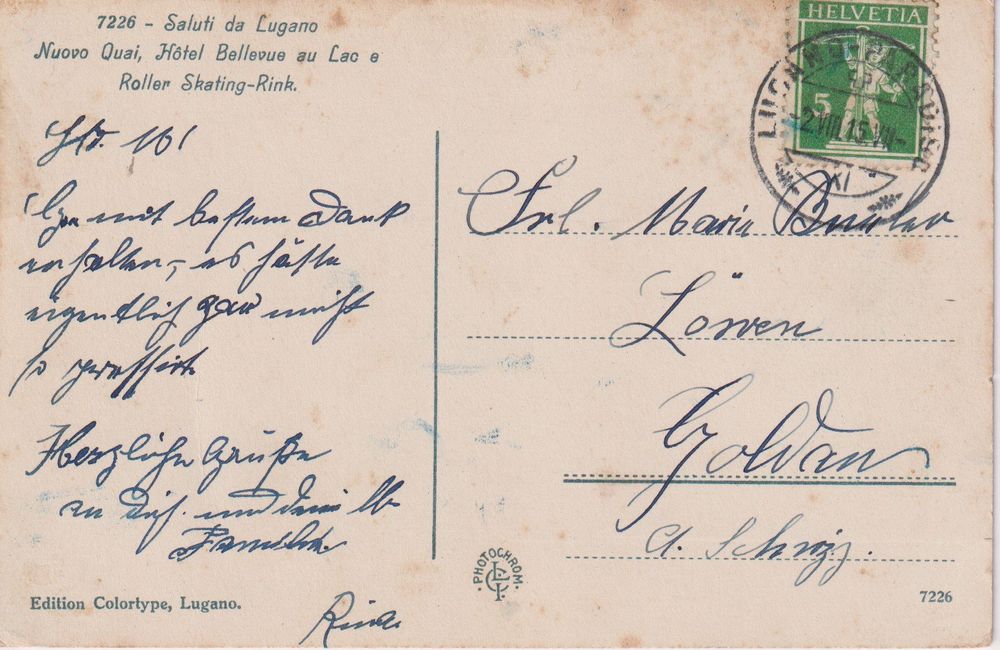 7226 - Saluti da Lugano
Nuovo Quai, Hôtel Bellevue au Lac e
Roller Skating-Rink.
mit bestem Dank
erhalten, es hätte
eigentlich gar nicht
so pressirt
Herzliche Grüße
an Dich und deine lb.
Familie.
Rina.
Edition Colortype, Lugano.
HELVETIA
5
2.VIII.15
Frl. Marie
Löwen
Goldau
Ct. Schwyz.
PHOTOCHROM
7226